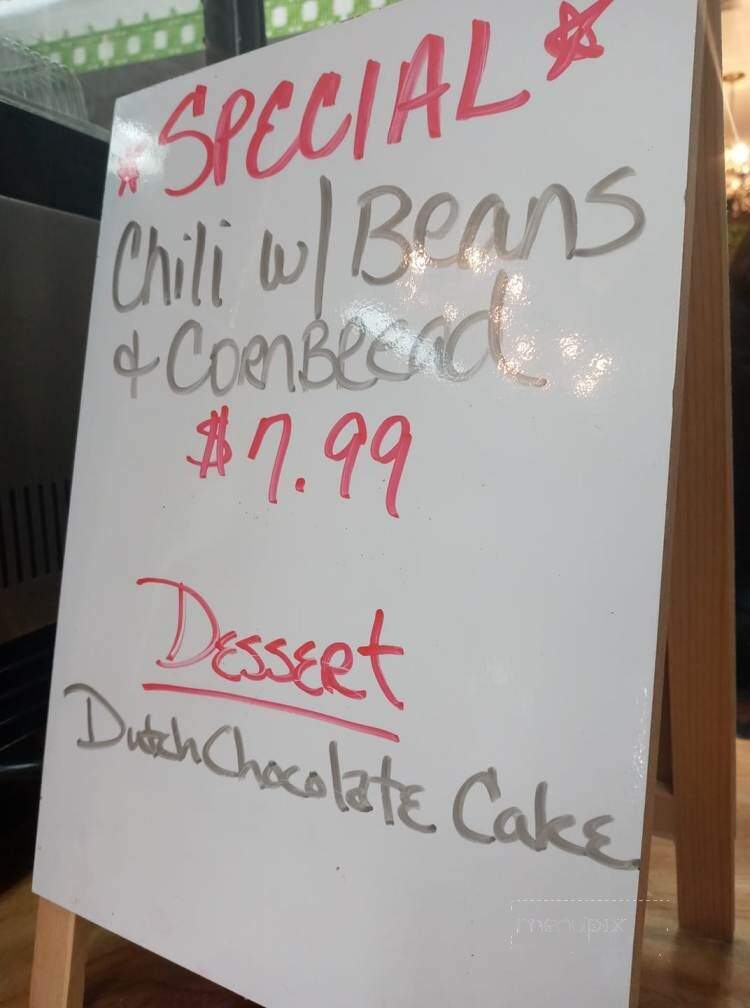 SPECIAL
Chili w/ Beans
& CornBread
$7.99
Dessert
Dutch Chocolate Cake
menupix